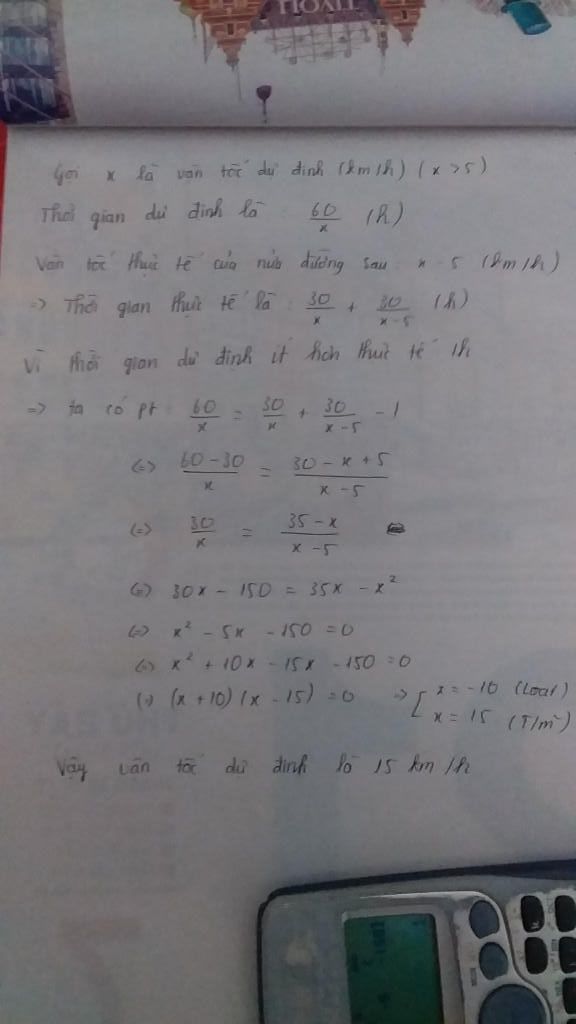 Gọi x là vận tốc dự định (km/h) (x > 5)
Thời gian dự định là : 60/x (h)
Vận tốc thực tế của nửa đường sau : x - 5 (km/h)
=> Thời gian thực tế là : 30/x + 30/(x-5) (h)
Vì thời gian dự định ít hơn thực tế 1h
=> ta có pt : 60/x = 30/x + 30/(x-5) - 1
(=) (60-30)/x = (30-x+5)/(x-5)
(=) 30/x = (35-x)/(x-5)
(=) 30x - 150 = 35x - x²
(=) x² - 5x - 150 = 0
(=) x² + 10x - 15x - 150 = 0
(=) (x+10)(x-15) = 0 => [ x = -10 (Loại)
x = 15 (T/m)
Vậy vận tốc dự định là 15 km/h